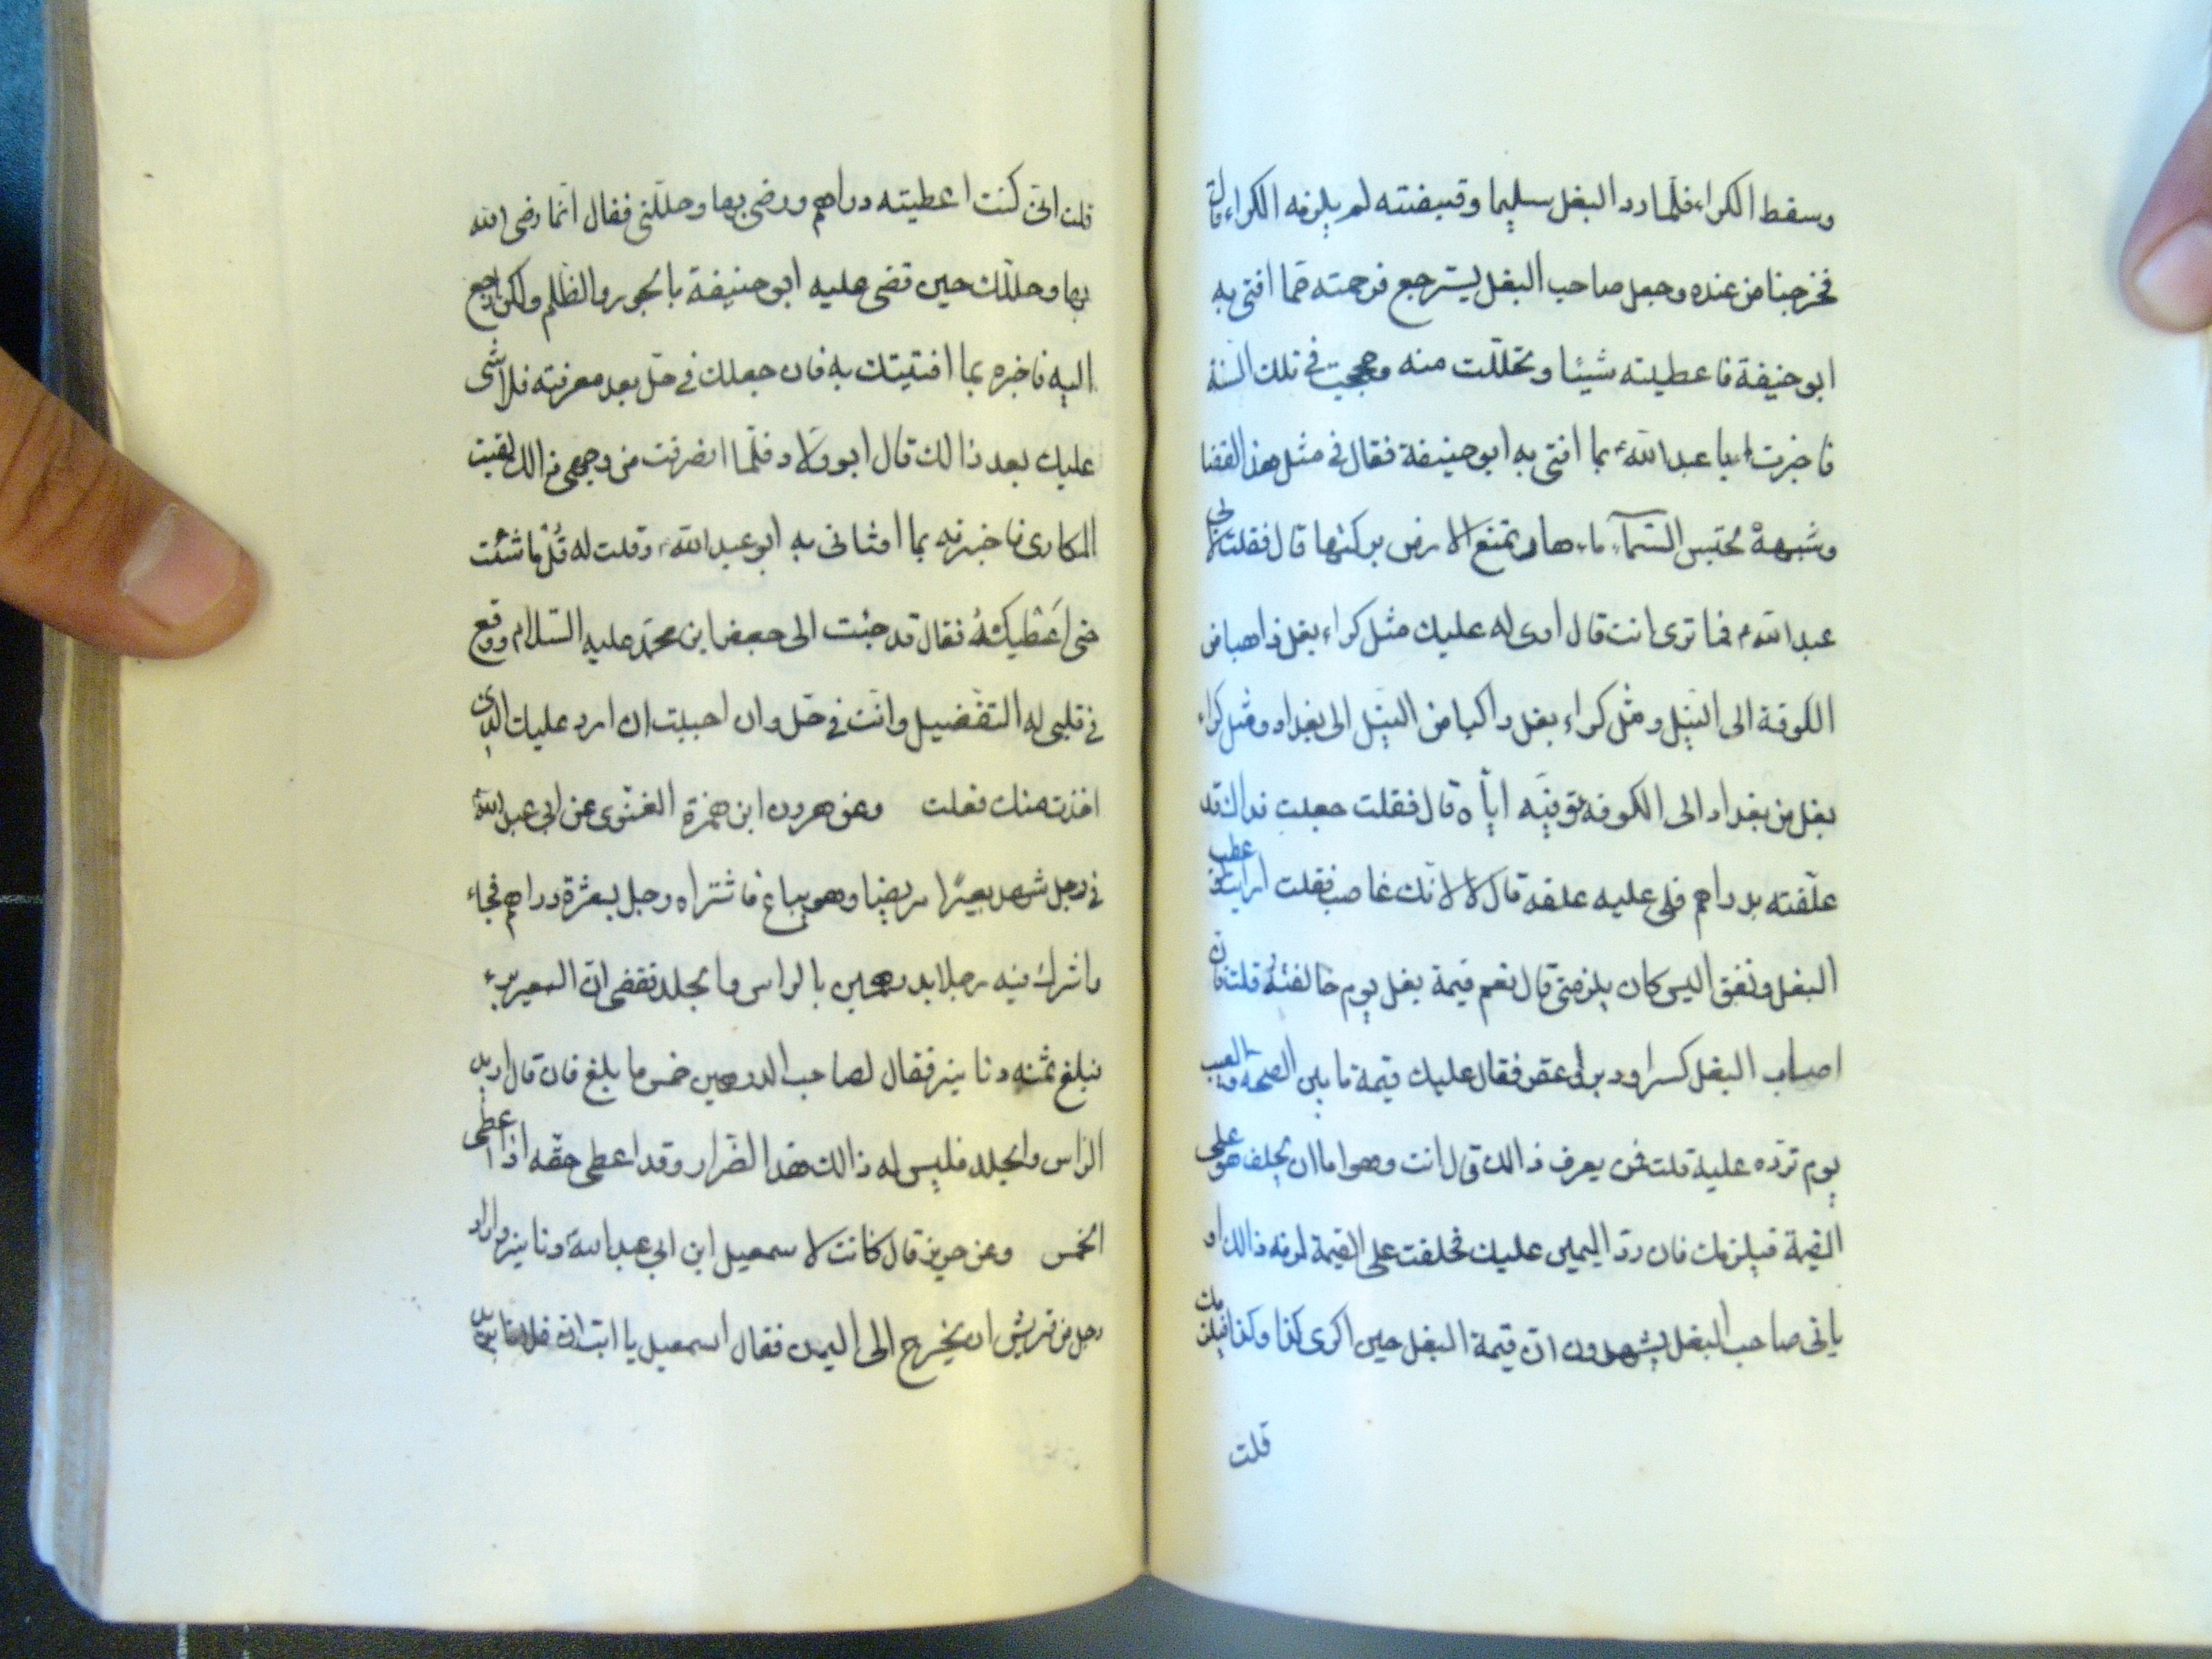 وسقط الكراء فلما رد البغل سليما وقبضته لم يلزمه الكراء قال
فخرجنا من عنده وجعل صاحب البغل يسترجع فرحمته مما افتى به
ابو حنيفة فاعطيته شيئا وتحللت منه وحججت في تلك السنة
فاخبرت ابا عبد الله ع بما افتى به ابو حنيفة فقال في مثل هذا القضا
وشبهه تحتبس السماء ماءها وتمنع الارض بركتها قال فقلت لابي
عبد الله ع فما ترى انت قال ارى له عليك مثل كراء بغل ذاهبا من
الكوفة الى النيل ومثل كراء بغل راكبا من النيل الى بغداد ومثل كراء
بغل من بغداد الى الكوفه توفيه اياه قال فقلت جعلت فداك قد
علفته بدراهم فلي عليه علفه قال لا لانك غاصب فقلت ارايت لو عطب
البغل ونفق اليس كان يلزمني قال نعم قيمة بغل يوم خالفته قلت فان
اصاب البغل كسر او دبر او عقر فقال عليك قيمة ما بين الصحة والعيب
يوم ترده عليه قلت فمن يعرف ذالك قال انت وهو اما ان يحلف هو على
القيمة فيلزمك فان رد اليمين عليك فحلفت على القيمة لزمه ذالك او
ياتي صاحب البغل بشهود ان قيمة البغل حين اكرى كذا وكذا فيلزمك
قلت
قلت اني كنت اعطيته دراهم ورضي بها وحللني فقال انما رضى
بها وحللك حين قضى عليه ابو حنيفة بالجور والظلم ولكن ارجع
اليه فاخبره بما افتيتك به فان جعلك في حل بعد معرفته فلا شئ
عليك بعد ذالك قال ابو ولاد فلما انصرفت من وجهي ذالك لقيت
المكارى فاخبرته بما افتاني به ابو عبد الله ع وقلت له قل ما شئت
حتى اعطيكه فقال قد حببت الى جعفر ابن محمد عليه السلام ووقع
في قلبي له التفضيل وانت في حل وان احببت ان ارد عليك الذى
اخذته منك فعلت وعن هرون ابن حمزة الغنوى عن ابي عبد الله ع
في رجل شهد بعيرا مريضا وهو يباع فاشتراه رجل بعشرة دراهم فجاء
واشرك فيه رجلا بدرهمين بالراس والجلد فقضى ان البعير برء
فبلغ ثمنه دنانير فقال لصاحب الدرهمين خمس ما بلغ فان قال اريد
الراس والجلد فليس له ذالك هذا الضرار وقد اعطى حقه اذا اعطى
الخمس وعن حريز قال كانت لاسمعيل ابن ابي عبد الله ع دنانير واراد
رجل من قريش ان يخرج الى اليمن فقال اسمعيل يا ابت ان فلانا يريد